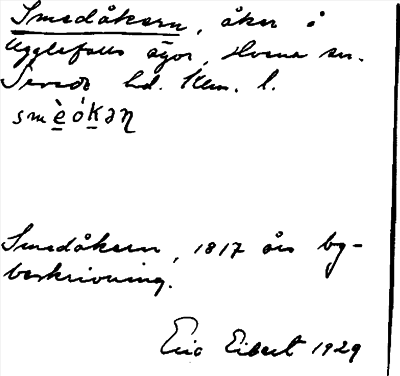 Smedåkern, åker i
Ugglefalls ägor, Hvena sn.
Sevede hd. Kalm. l.
smèǻkəɳ
Smedåkern, 1817 års by-
beskrivning.
Eric Eibert 1929